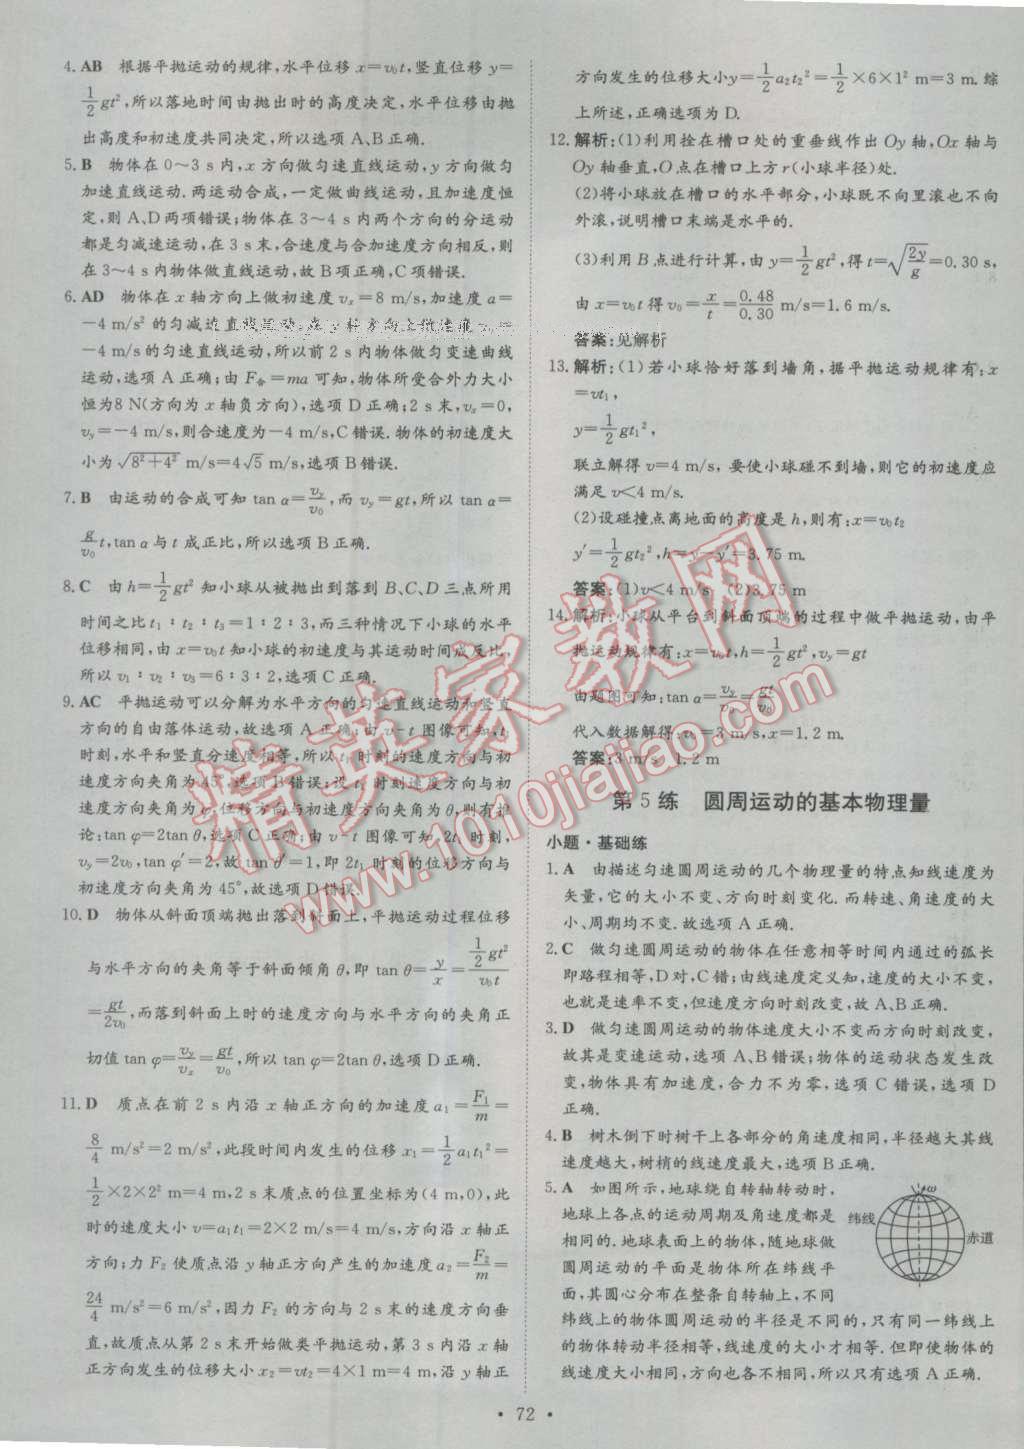 4. AB 根据平抛运动的规律,水平位移 x=v₀t,竖直位移 y=
½gt²,所以落地时间由抛出时的高度决定,水平位移由抛
出高度和初速度共同决定,所以选项 A、B 正确.
5. B 物体在 0～3 s 内,x 方向做匀速直线运动,y 方向做匀
加速直线运动.两运动合成,一定做曲线运动,且加速度恒
定,则 A、D 两项错误;物体在 3～4 s 内两个方向的分运动
都是匀减速运动,在 3 s 末,合速度与合加速度方向相反,则
在 3～4 s 内物体做直线运动,故 B 项正确,C 项错误.
6. AD 物体在 x 轴方向上做初速度 vₓ=8 m/s,加速度 a=
-4 m/s² 的匀减速直线运动,在 y 轴方向上做速度
-4 m/s 的匀速直线运动,所以前 2 s 内物体做匀变速曲线
运动,选项 A 正确;由 F合=ma 可知,物体所受合外力大小
恒为8 N(方向为 x 轴负方向),选项 D 正确;2 s 末,vₓ=0,
v_y=-4 m/s,则合速度为-4 m/s,C 错误.物体的初速度大
小为√(8²+4²) m/s=4√5 m/s,选项 B 错误.
7. B 由运动的合成可知 tan α=v_y/v₀,而 v_y=gt,所以 tan α=
(g/v₀)t,tan α 与 t 成正比,所以选项 B 正确.
8. C 由 h=½gt² 知小球从被抛出到落到 B、C、D 三点所用
时间之比 t₁∶t₂∶t₃=1∶2∶3,而三种情况下小球的水平
位移相同,由 x=v₀t 知小球的初速度与其运动时间成反比,
所以 v₁∶v₂∶v₃=6∶3∶2,选项 C 正确.
9. AC 平抛运动可以分解为水平方向的匀速直线运动和竖直
方向的自由落体运动,故选项 A 正确;由 v-t 图像可知,t₁
时刻,水平和竖直分速度相等,所以 t₁ 时刻的速度方向与初
速度方向夹角为 45°,选项 B 错误;设 t₁ 时刻速度方向与初
速度方向夹角为 φ,位移方向与初速度方向夹角为 θ,则有推
论:tan φ=2tan θ,故选项 C 正确;由 v-t 图像可知,2t₁ 时刻,
v_y=2v₀,tan φ′=2,故 tan θ′=1,即 2t₁ 时刻的位移方向与
初速度方向夹角为 45°,故选项 D 错误.
10. D 物体从斜面顶端抛出落到斜面上,平抛运动过程位移
与水平方向的夹角等于斜面倾角 θ,即 tan θ=y/x=½gt²/(v₀t)
=gt/(2v₀),而落到斜面上时的速度方向与水平方向的夹角正
切值 tan φ=v_y/vₓ=gt/v₀,所以 tan φ=2tan θ,选项 D 正确.
11. D 质点在前 2 s 内沿 x 轴正方向的加速度 a₁=F₁/m=
8/4 m/s²=2 m/s²,此段时间内发生的位移 x₁=½a₁t₁²=
½×2×2² m=4 m,2 s 末质点的位置坐标为(4 m,0),此
时的速度大小 v=a₁t₁=2×2 m/s=4 m/s,方向沿 x 轴正
方向;力 F₂ 使质点沿 y 轴正方向产生的加速度 a₂=F₂/m=
24/4 m/s²=6 m/s²,因力 F₂ 的方向与 2 s 末的速度方向垂
直,故质点从第 2 s 末开始做类平抛运动,第 3 s 内沿 x 轴
正方向发生的位移大小 x₂=vt₂=4×1 m=4 m,沿 y 轴正
方向发生的位移大小 y=½a₂t₂²=½×6×1² m=3 m.综
上所述,正确选项为 D.
12. 解析:(1)利用拴在槽口处的重垂线作出 Oy 轴,Ox 轴与
Oy 轴垂直,O 点在槽口上方 r(小球半径)处.
(2)将小球放在槽口的水平部分,小球既不向里滚也不向
外滚,说明槽口末端是水平的.
(3)利用 B 点进行计算,由 y=½gt²,得 t=√(2y/g)=0.30 s,
由 x=v₀t 得 v₀=x/t=0.48/0.30 m/s=1.6 m/s.
答案:见解析
13. 解析:(1)若小球恰好落到墙角,据平抛运动规律有:x
=vt₁,
y=½gt₁²,
联立解得 v=4 m/s,要使小球碰不到墙,则它的初速度应
满足 v<4 m/s.
(2)设碰撞点离地面的高度是 h,则有:x=v₀t₂
y′=½gt₂²,h=y-y′=3.75 m.
答案:(1)v<4 m/s (2)3.75 m
14. 解析:小球从平台到斜面顶端的过程中做平抛运动,由平
抛运动规律有:x=v₀t,h=½gt²,v_y=gt
由题图可知:tan α=v_y/v₀=gt/v₀
代入数据解得:v₀=3 m/s,x=1.2 m.
答案:3 m/s 1.2 m
第 5 练 圆周运动的基本物理量
小题·基础练
1. A 由描述匀速圆周运动的几个物理量的特点知线速度为
矢量,它的大小不变、方向时刻变化.而转速、角速度的大
小、周期均不变.故选项 A 正确.
2. C 做匀速圆周运动的物体在任意相等时间内通过的弧长
即路程相等,D 对,C 错;由线速度定义知,速度的大小不变,
也就是速率不变,但速度方向时刻改变,故 A、B 正确.
3. D 做匀速圆周运动的物体速度大小不变而方向时刻改变,
故其是变速运动,选项 A、B 错误;物体的运动状态发生改
变,物体具有加速度,合力不为零,选项 C 错误,选项 D
正确.
4. B 树木倒下时树干上各部分的角速度相同,半径越大其线
速度越大,树梢的线速度最大,选项 B 正确.
5. A 如图所示,地球绕自转轴转动时,
地球上各点的运动周期及角速度都是
相同的.地球表面上的物体,随地球做
圆周运动的平面是物体所在纬线平
面,其圆心分布在整条自转轴上,不同
纬线上的物体圆周运动的半径是不同的,只有同一纬线上
的物体转动半径相等,线速度的大小才相等.但即使物体的
线速度大小相同,方向也各不相同,所以只有选项 A 正确.
ω
纬线
赤道
· 72 ·
精英家教网
www.1010jiajiao.com